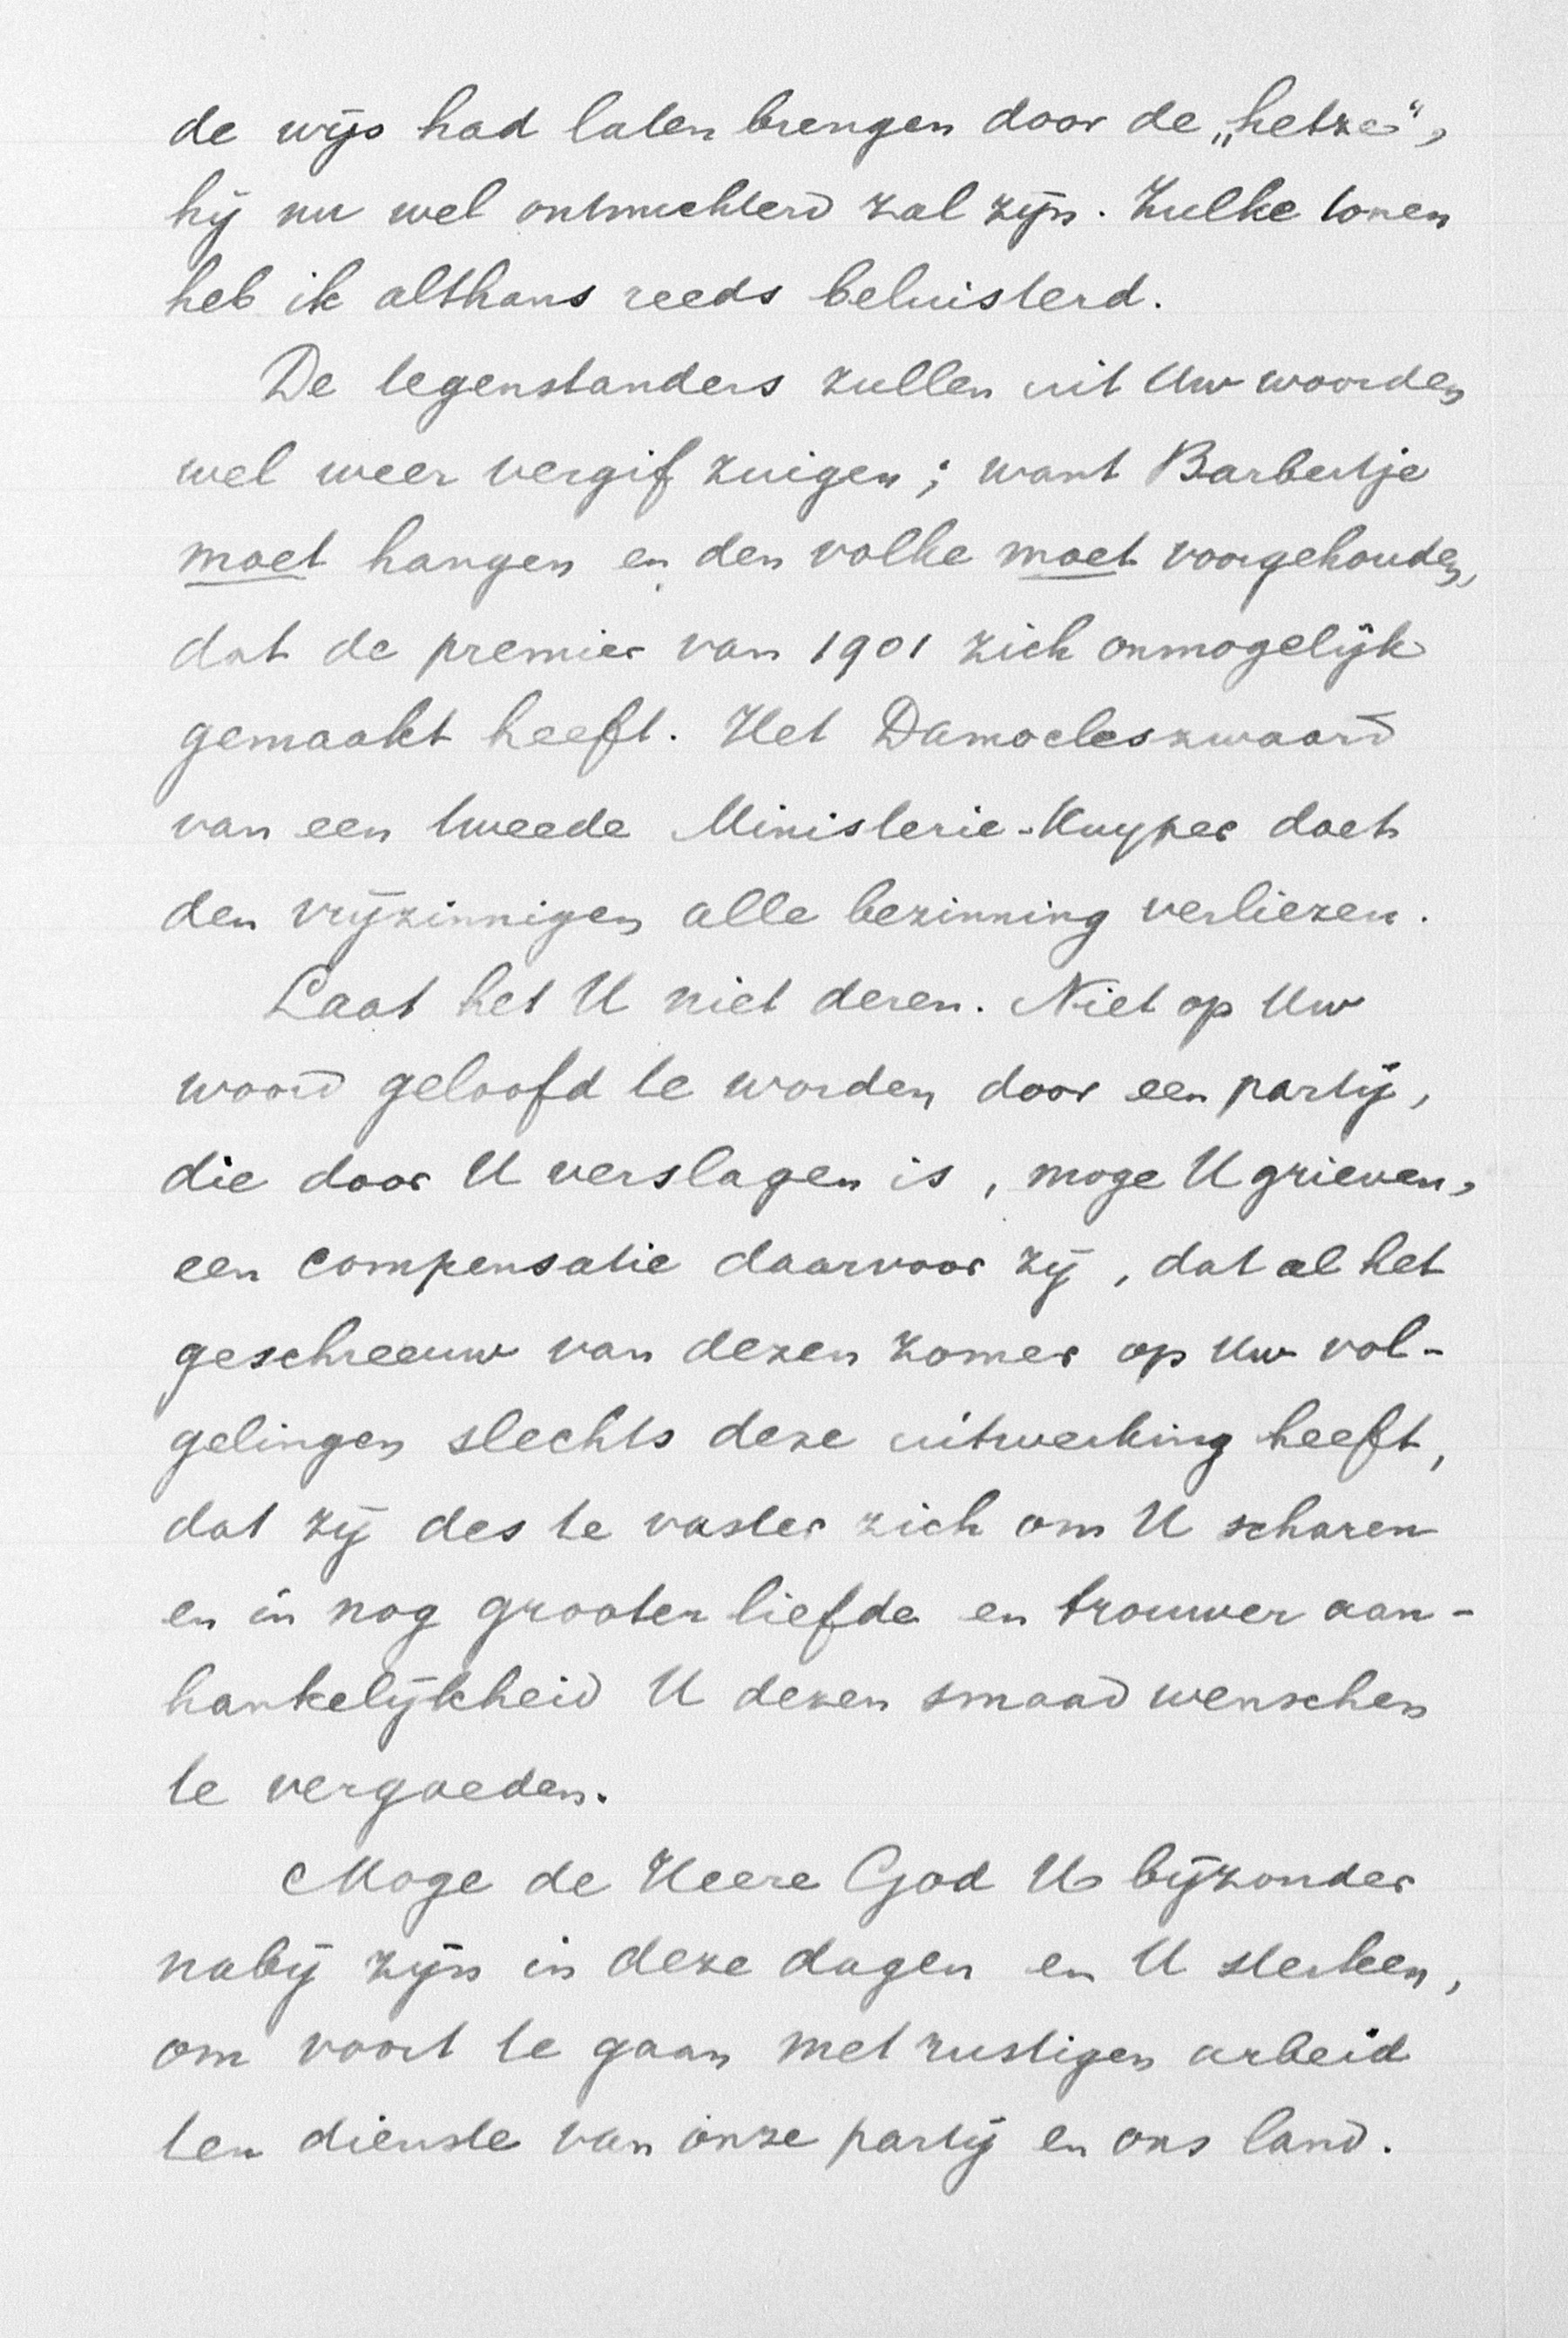 de wijs had laten brengen door de „hetze",
hij nu wel ontnuchterd zal zijn. Zulke tonen
heb ik althans reeds beluisterd.
De tegenstanders zullen uit Uw woorden
wel weer vergif zuigen; want Barbertje
moet hangen en den volke moet voorgehouden,
dat de premier van 1901 zich onmogelijk
gemaakt heeft. Het Damocleszwaard
van een tweede Ministerie-Kuyper doet
den vrijzinnigen alle bezinning verliezen.
Laat het U niet deren. Niet op Uw
woord geloofd te worden door een partij,
die door U verslagen is, moge U grieven,
een compensatie daarvoor zij, dat al het
geschreeuw van dezen zomer op Uw vol-
gelingen slechts deze uitwerking heeft,
dat zij des te vaster zich om U scharen
en in nog grooter liefde en trouwer aan-
hankelijkheid U dezen smaad wenschen
te vergoeden.
Moge de Heere God U bijzonder
nabij zijn in deze dagen en U sterken,
om voort te gaan met rustigen arbeid
ten dienste van onze partij en ons land.